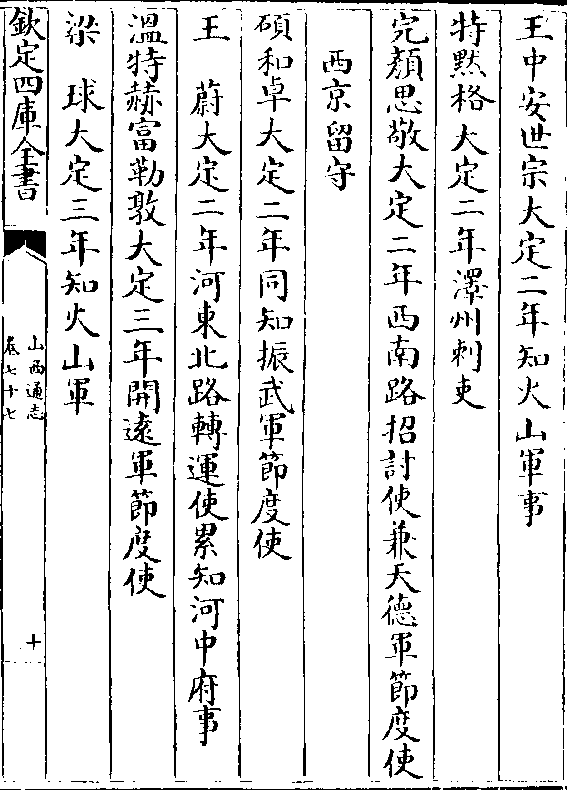 王中安世宗大定二年知火山軍事
特黙格大定二年澤州刺吏
完顏思敬大定二年西南路招討使兼天德軍節度使
西京留守
碩和卓大定二年同知振武軍節度使
王　蔚大定二年河東北路轉運使累知河中府事
溫特赫富勒敦大定三年開遠軍節度使
梁　球大定三年知火山軍
欽定四庫全書
山西通志
卷七十七
十